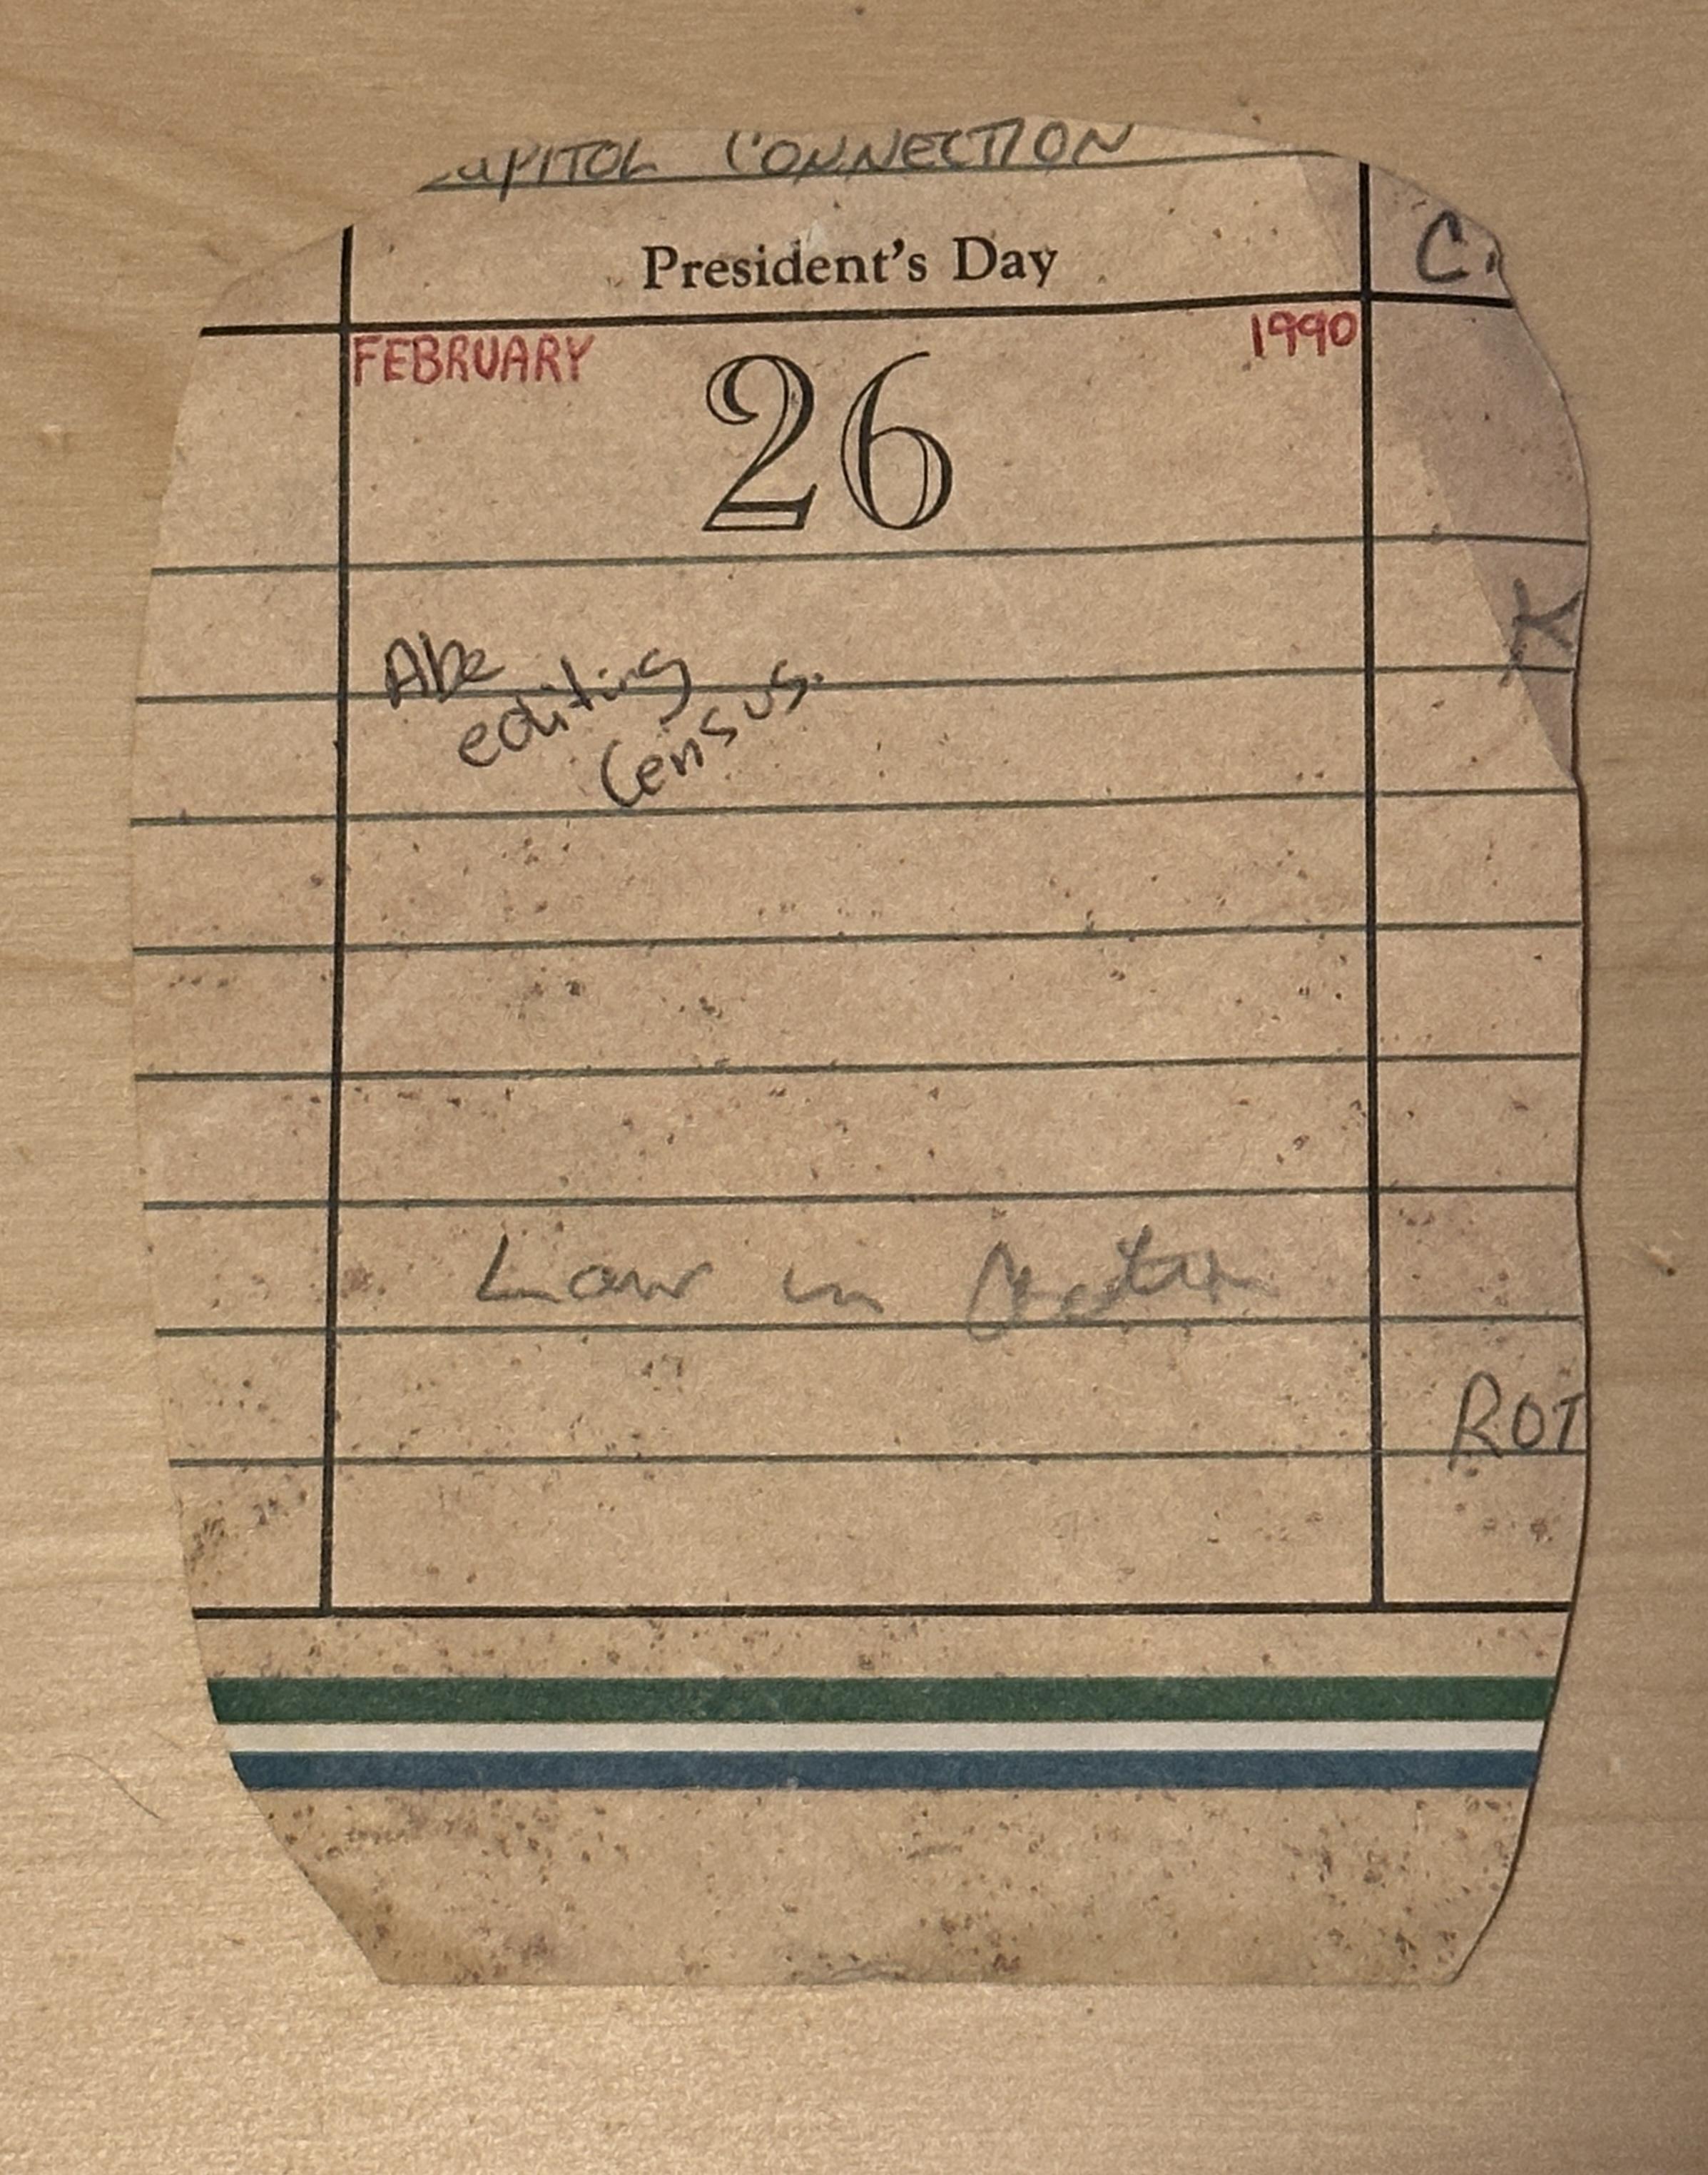 CAPITOL CONNECTION
President's Day
C.
FEBRUARY 1990
26
Abe
editing
Census.
Law in
ROT